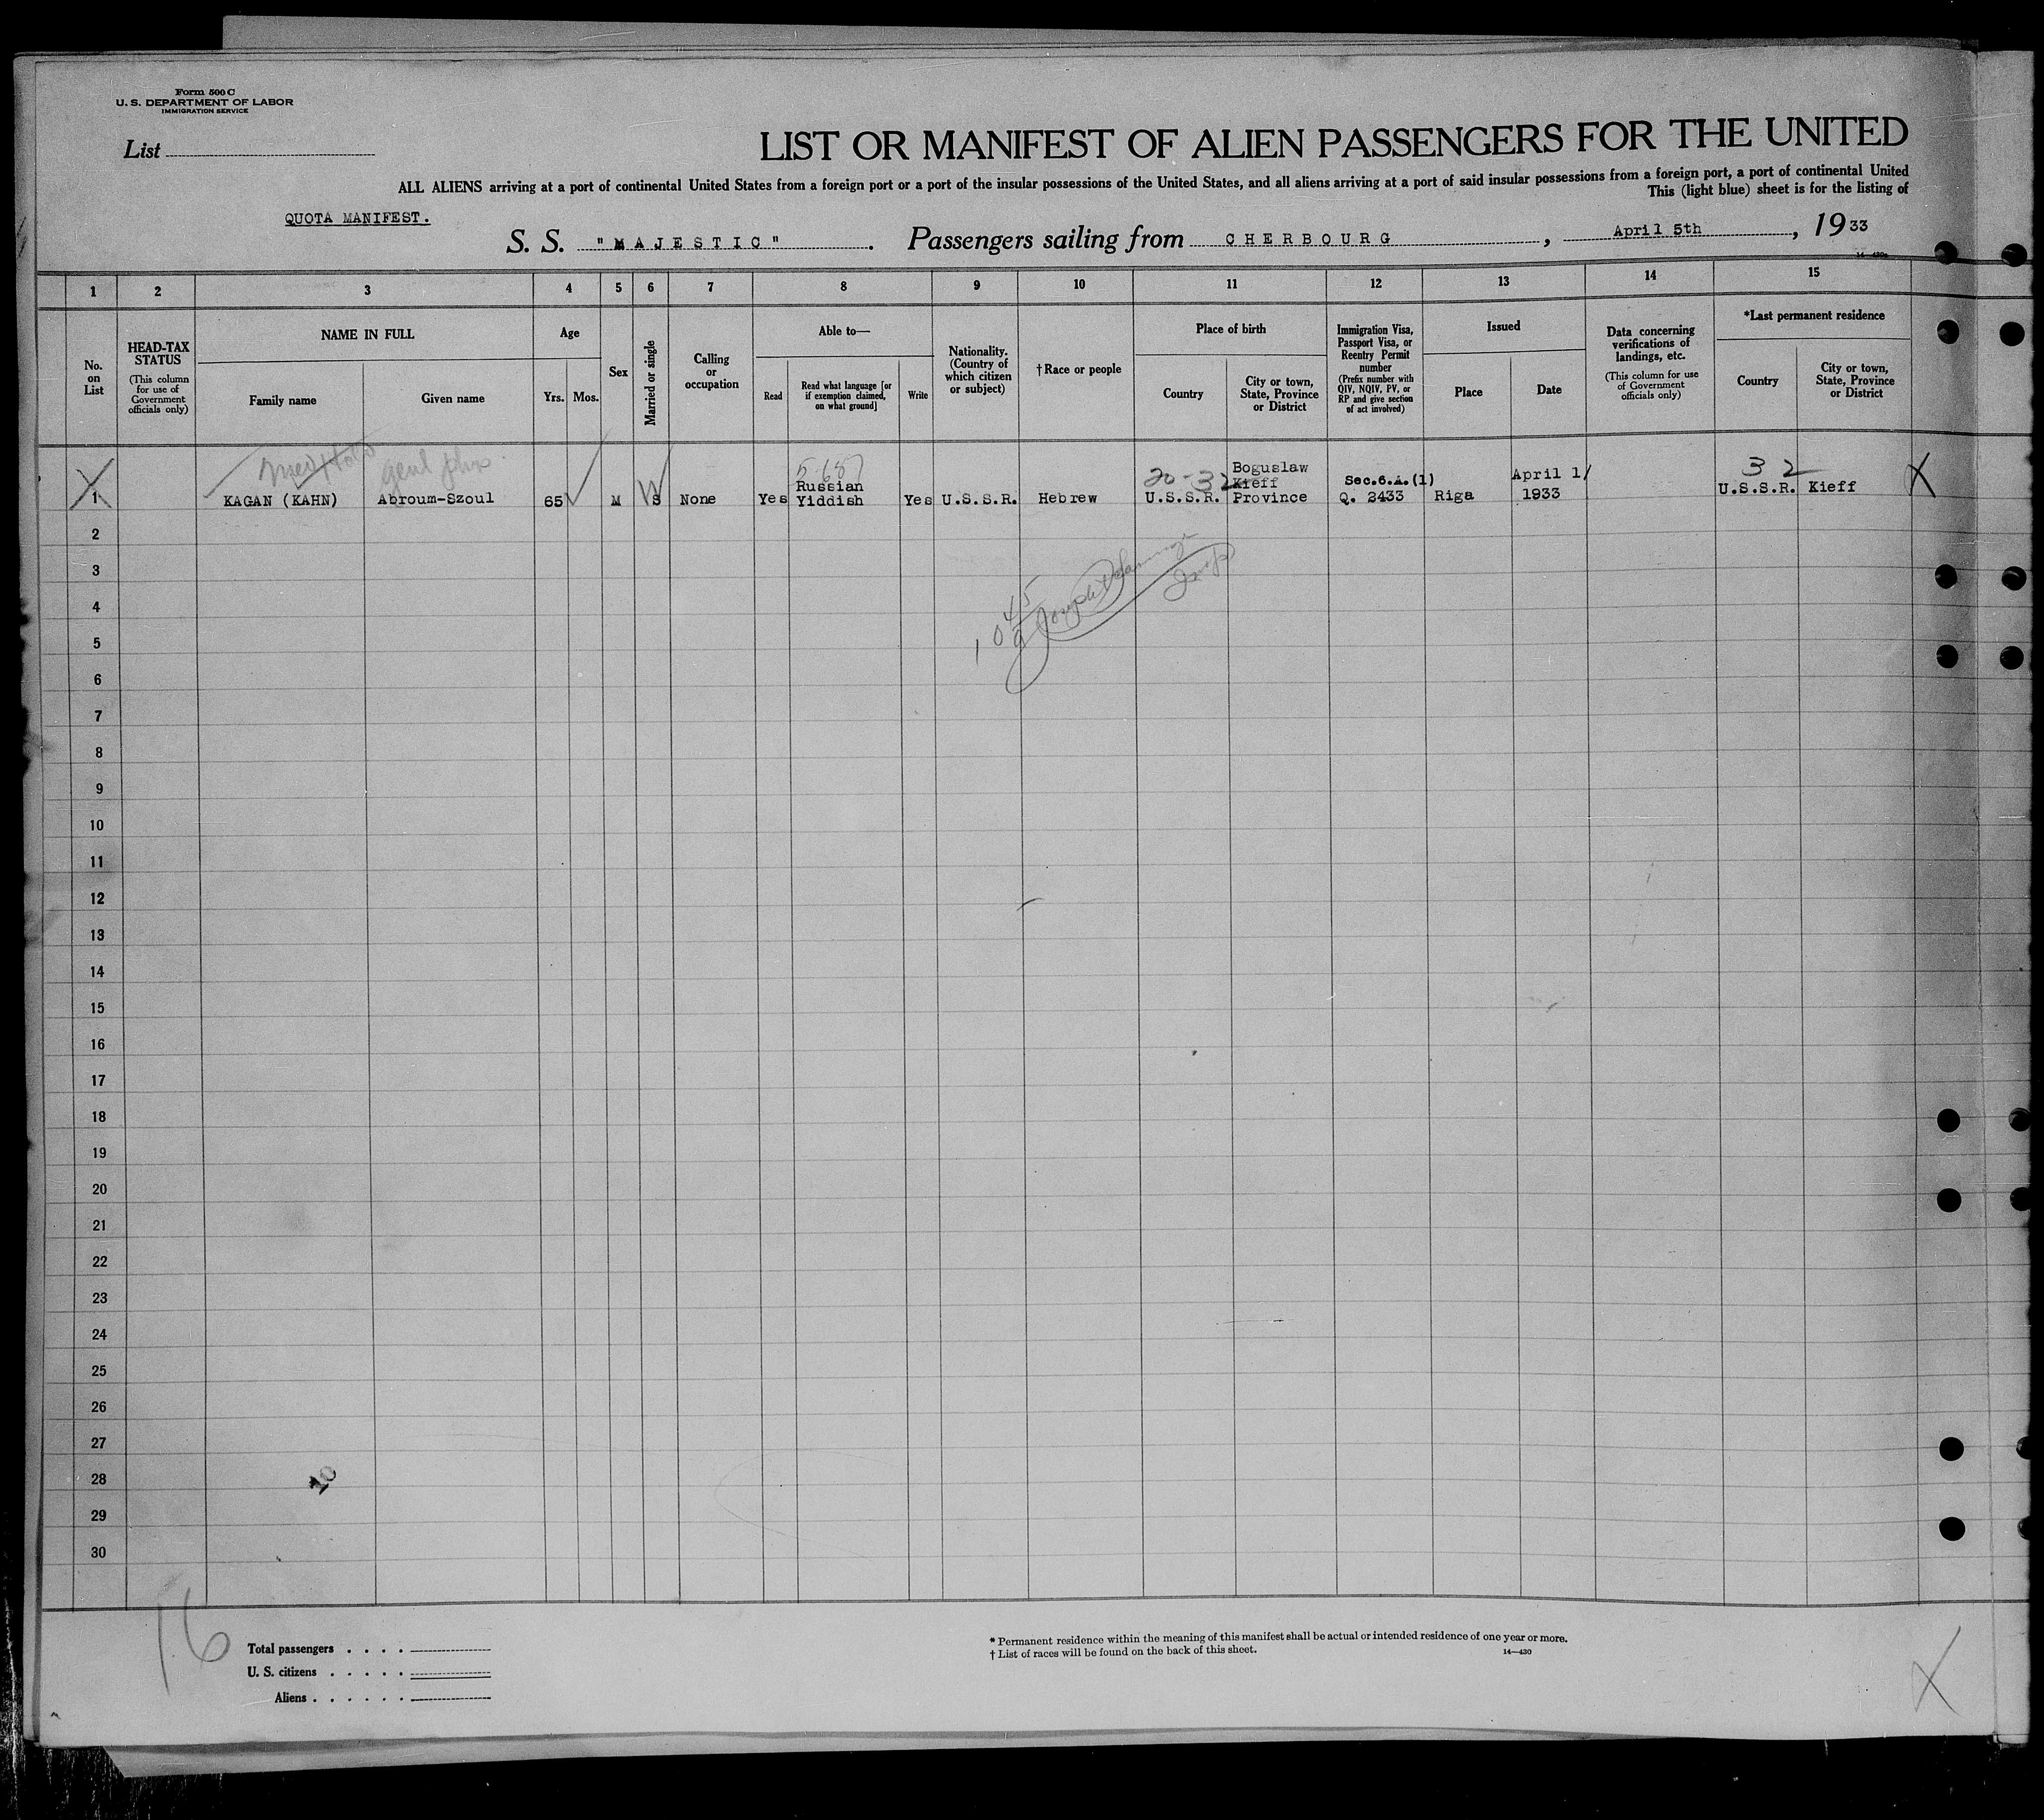 Form 500 C
U. S. DEPARTMENT OF LABOR
IMMIGRATION SERVICE
List
LIST OR MANIFEST OF ALIEN PASSENGERS FOR THE UNITED
ALL ALIENS arriving at a port of continental United States from a foreign port or a port of the insular possessions of the United States, and all aliens arriving at a port of said insular possessions from a foreign port, a port of continental United
This (light blue) sheet is for the listing of
QUOTA MANIFEST.
S. S. "MAJESTIC". Passengers sailing from CHERBOURG, April 5th, 1933
1 2 3 4 5 6 7 8 9 10 11 12 13 14 15
No. on List
HEAD-TAX STATUS
(This column for use of Government officials only)
NAME IN FULL
Family name
Given name
Age
Yrs. Mos.
Sex
Married or single
Calling or occupation
Able to—
Read
Read what language [or if exemption claimed, on what ground]
Write
Nationality. (Country of which citizen or subject)
†Race or people
Place of birth
Country
City or town, State, Province or District
Immigration Visa, Passport Visa, or Reentry Permit number
(Prefix number with QIV, NQIV, PV, or RP and give section of act involved)
Issued
Place
Date
Data concerning verifications of landings, etc.
(This column for use of Government officials only)
*Last permanent residence
Country
City or town, State, Province or District
5-687
20-32 Boguslaw
32
Russian Kieff Sec.6.A.(1) April 1/
1 KAGAN (KAHN) Abroum-Szoul 65 M S None Yes Yiddish Yes U.S.S.R. Hebrew U.S.S.R. Province Q. 2433 Riga 1933 U.S.S.R. Kieff X
2
3
4
5
6
7
8
9
10
11
12
13
14
15
16
17
18
19
20
21
22
23
24
25
26
27
28
29
30
10
16
Total passengers
U. S. citizens
Aliens
* Permanent residence within the meaning of this manifest shall be actual or intended residence of one year or more.
† List of races will be found on the back of this sheet.
14—430
X